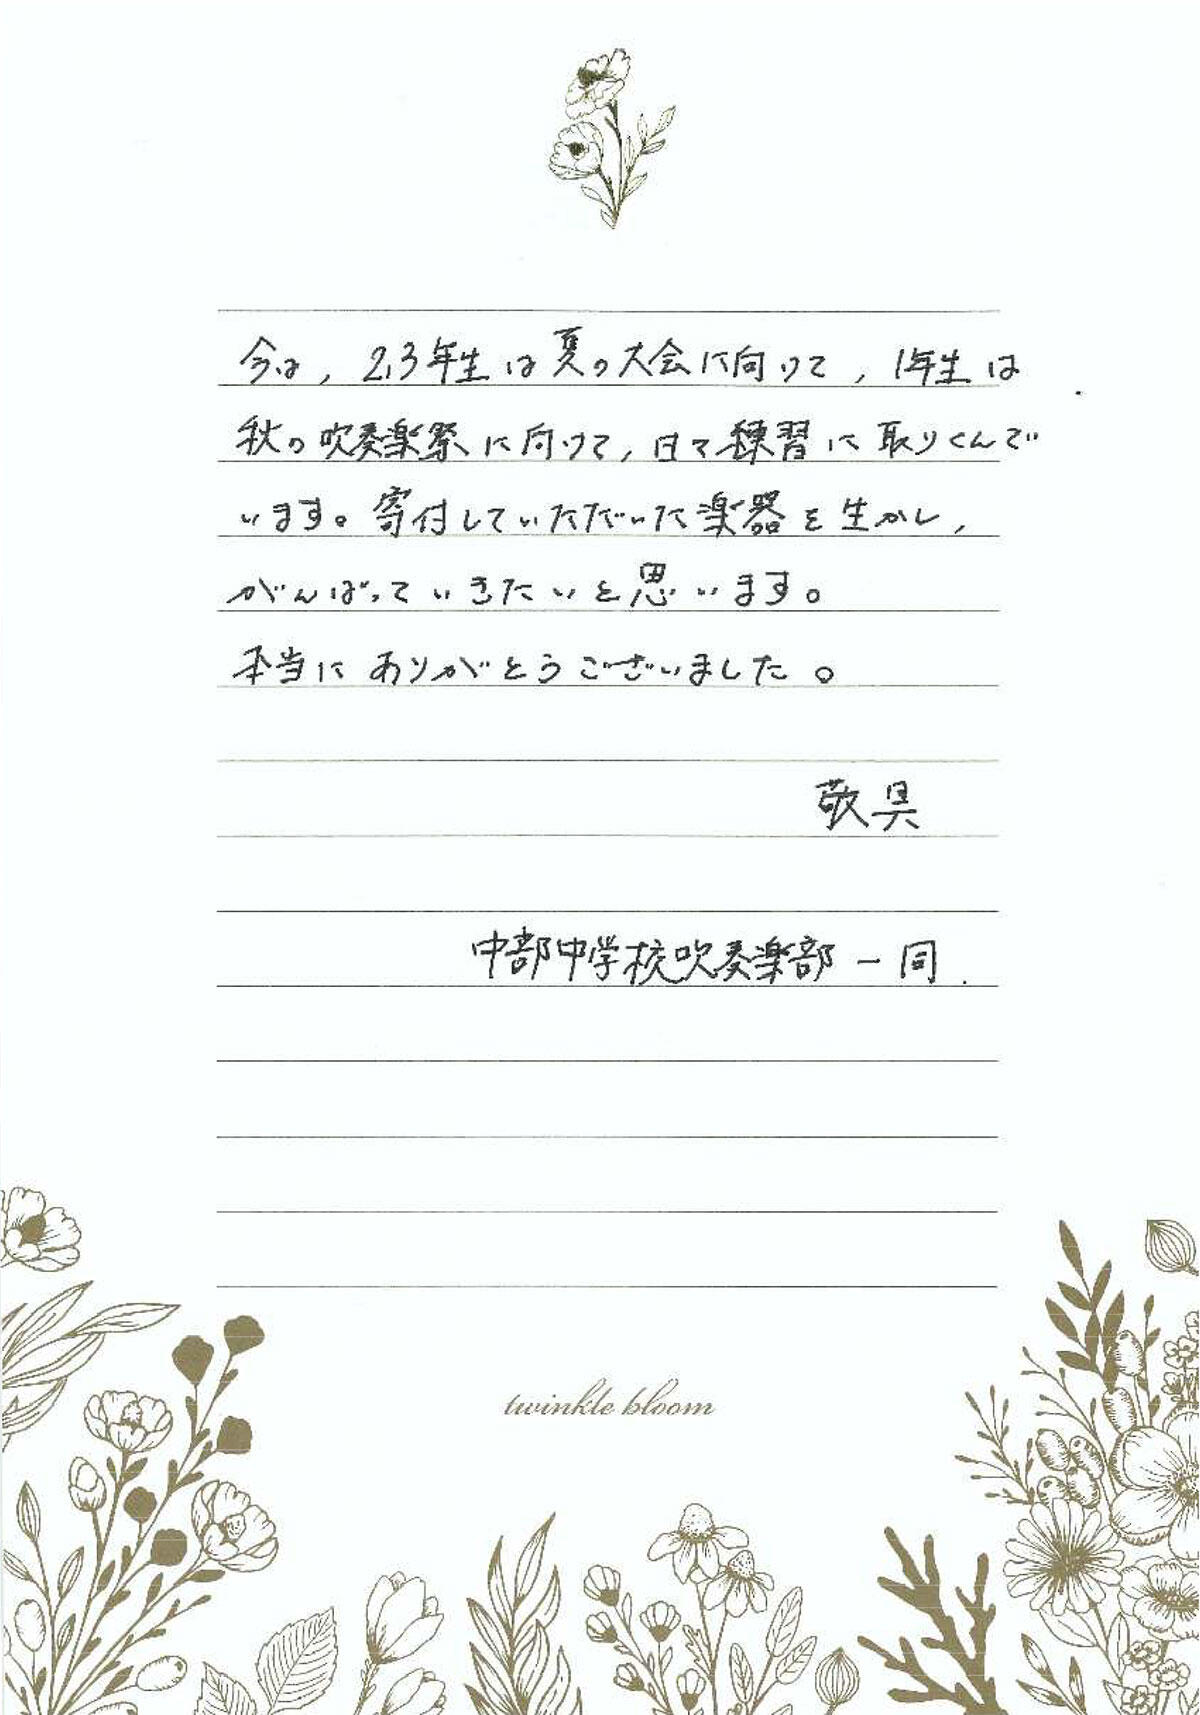 今は，2,3年生は夏の大会に向けて，1年生は
秋の吹奏楽祭に向けて，日々練習に取りくんで
います。寄付していただいた楽器を生かし，
がんばっていきたいと思います。
本当にありがとうございました。
敬具
中部中学校吹奏楽部一同．
twinkle bloom